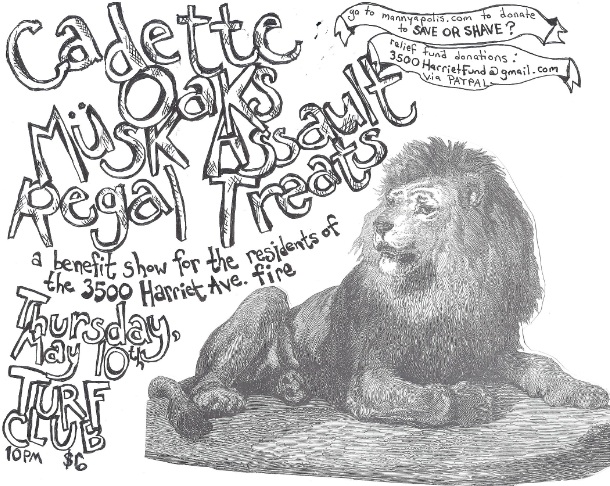 Cadette
Oaks
Müsk Assault
Regal Treats
go to mannyapolis.com to donate
to SAVE OR SHAVE?
relief fund donations:
3500HarrietFund@gmail.com
via PAYPAL
a benefit show for the residents of
the 3500 Harriet Ave. fire
Thursday,
May 10th,
TURF
CLUB
10PM $6